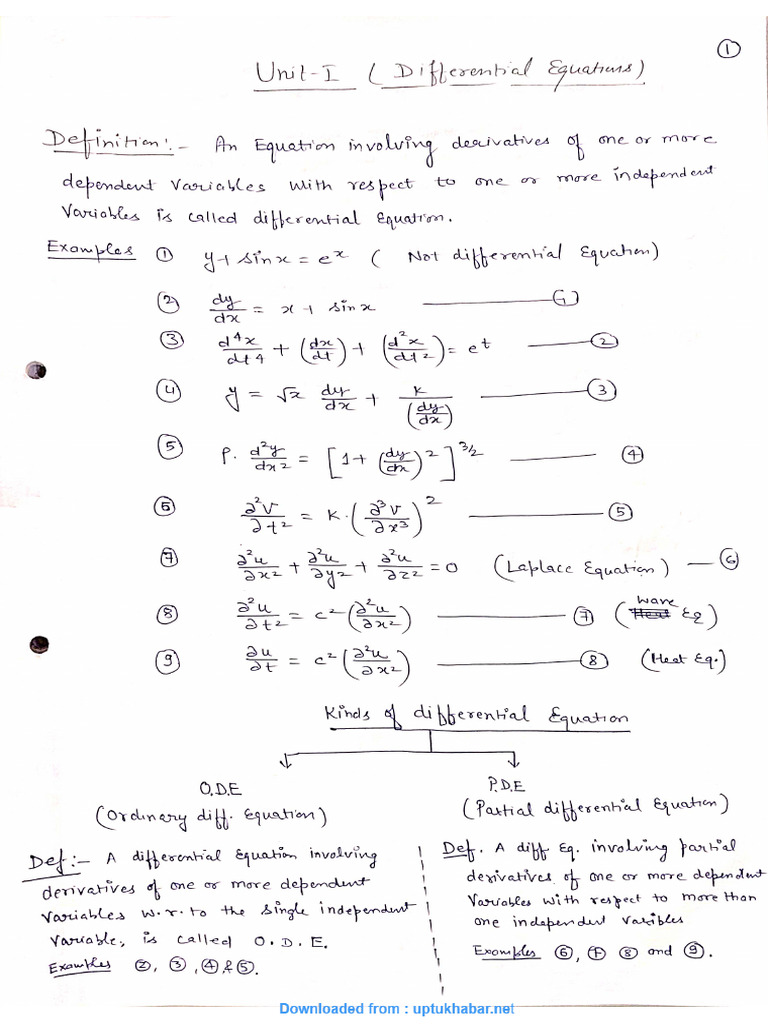 ①
Unit-I ( Differential Equations)
Definition:- An Equation involving derivatives of one or more
dependent variables with respect to one or more independent
variables is called differential Equation.
Examples ① y+ sinx = eˣ ( Not differential Equation)
② dy/dx = x + sinx ——— ①
③ d⁴x/dt⁴ + (dx/dt) + (d²x/dt²) = eᵗ ——— ②
④ y = √x dy/dx + K/(dy/dx) ——— ③
⑤ P. d²y/dx² = [1+ (dy/dx)²]^3/2 ——— ④
⑥ ∂²V/∂t² = K.(∂³V/∂x³)² ——— ⑤
⑦ ∂²u/∂x² + ∂²u/∂y² + ∂²u/∂z² = 0 (Laplace Equation) — ⑥
⑧ ∂²u/∂t² = c² (∂²u/∂x²) ——— ⑦ (wave Eq)
⑨ ∂u/∂t = c² (∂²u/∂x²) ——— ⑧ (Heat Eq.)
Kinds of differential Equation
O.D.E
(Ordinary diff. Equation)
Def:- A differential Equation involving
derivatives of one or more dependent
variables w.r.to the single independent
variable, is called O.D.E.
Examples ②, ③, ④ & ⑤.
P.D.E
(Partial differential Equation)
Def. A diff Eq. involving partial
derivatives of one or more dependent
variables with respect to more than
one independent varibles
Examples ⑥, ⑦ ⑧ and ⑨.
Downloaded from : uptukhabar.net